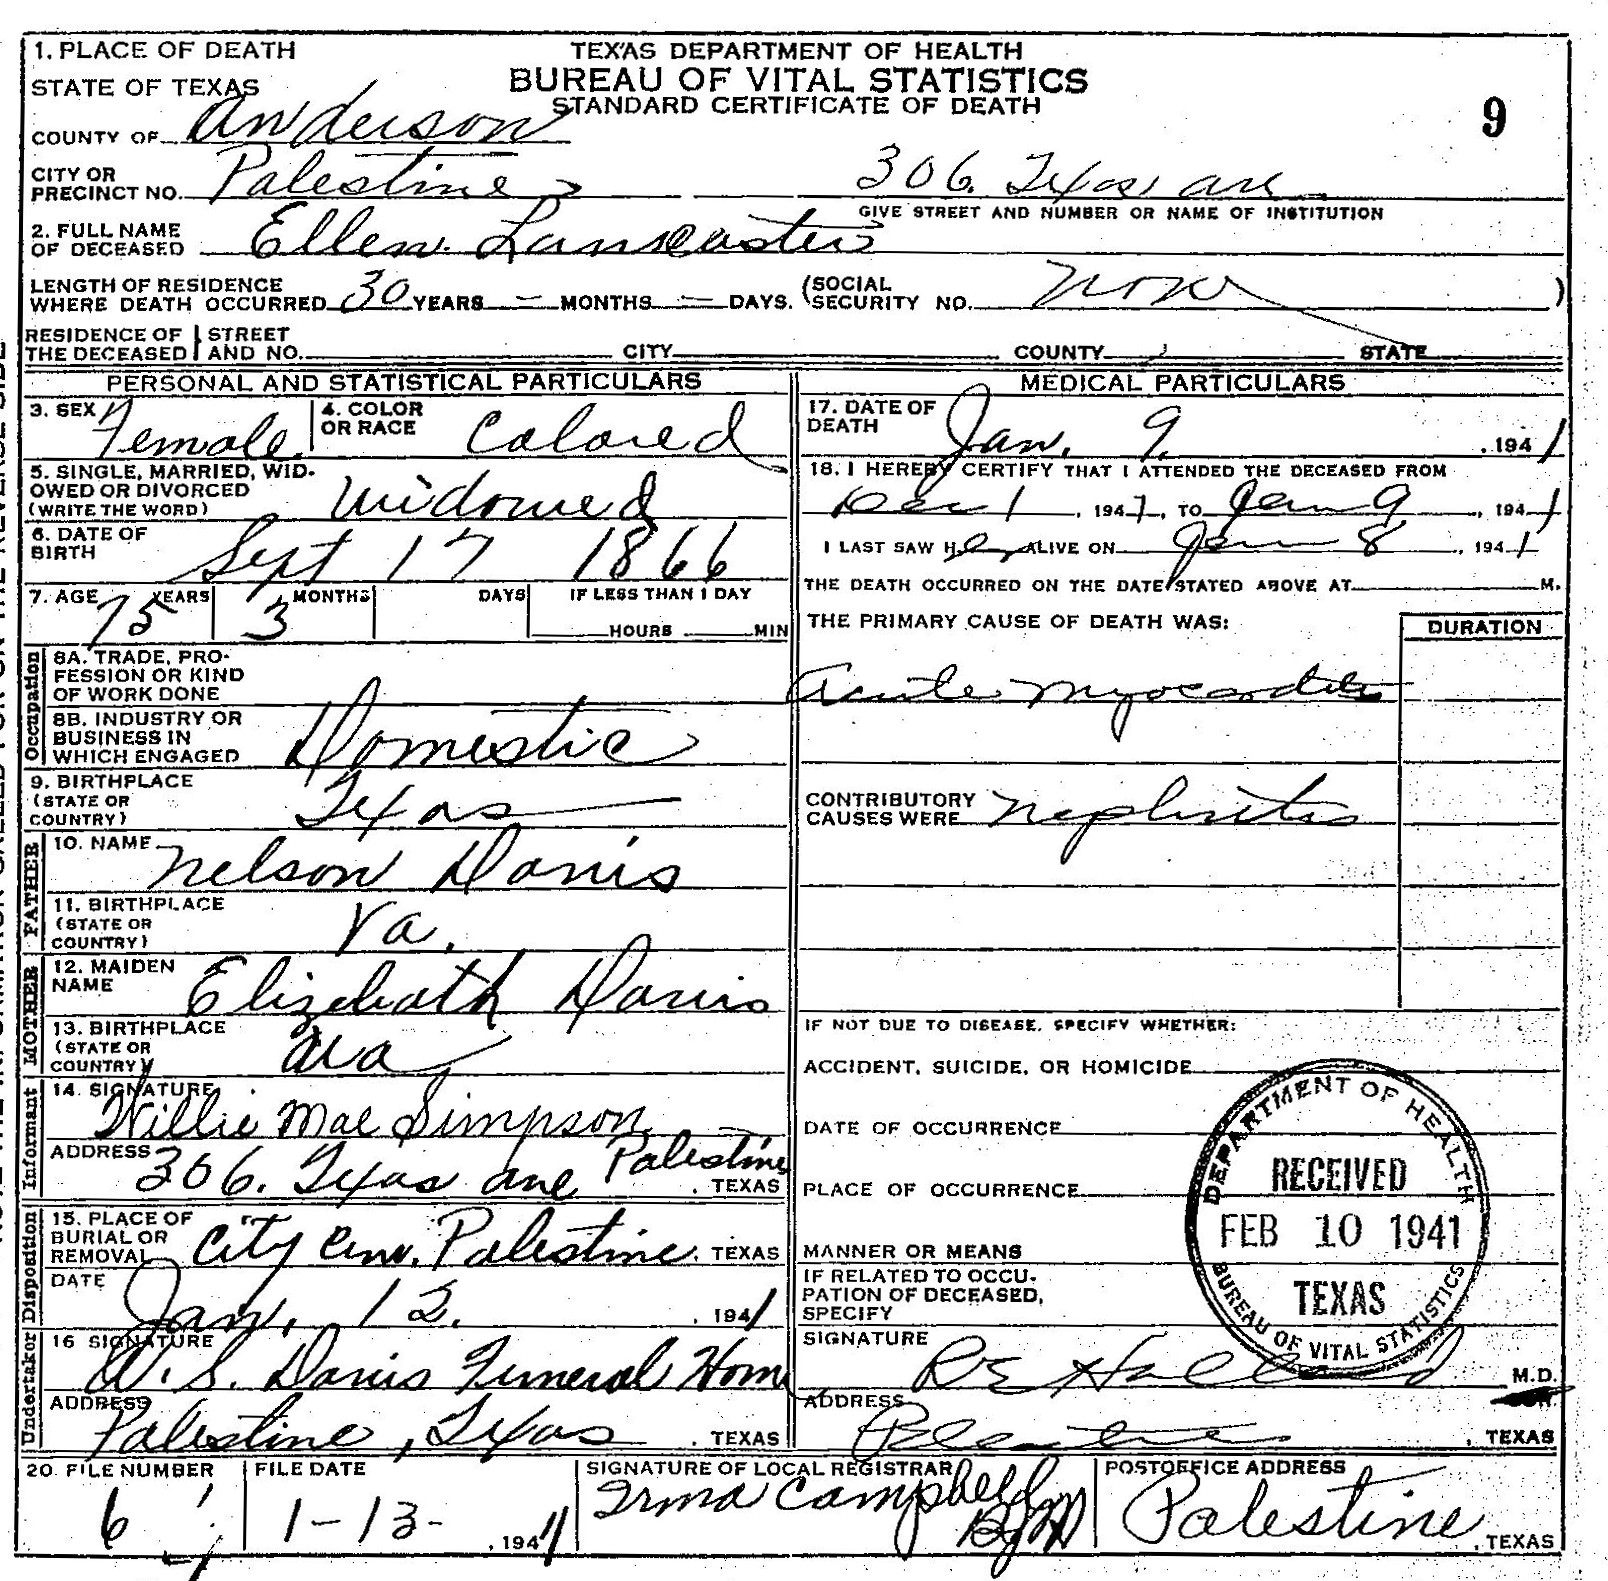 1. PLACE OF DEATH
TEXAS DEPARTMENT OF HEALTH
BUREAU OF VITAL STATISTICS
STANDARD CERTIFICATE OF DEATH
9
STATE OF TEXAS
COUNTY OF Anderson
CITY OR PRECINCT NO. Palestine 306. Texas ave
GIVE STREET AND NUMBER OR NAME OF INSTITUTION
2. FULL NAME OF DECEASED Ellen Lancaster
LENGTH OF RESIDENCE WHERE DEATH OCCURRED 30 YEARS - MONTHS - DAYS. (SOCIAL SECURITY NO. None )
RESIDENCE OF THE DECEASED STREET AND NO. CITY COUNTY STATE
PERSONAL AND STATISTICAL PARTICULARS
3. SEX Female 4. COLOR OR RACE Colored
5. SINGLE, MARRIED, WIDOWED OR DIVORCED (WRITE THE WORD) Widowed
6. DATE OF BIRTH Sept 17 1866
7. AGE 75 YEARS 3 MONTHS DAYS IF LESS THAN 1 DAY
HOURS MIN
Occupation
8A. TRADE, PROFESSION OR KIND OF WORK DONE
8B. INDUSTRY OR BUSINESS IN WHICH ENGAGED Domestic
9. BIRTHPLACE (STATE OR COUNTRY) Texas
FATHER
10. NAME Nelson Davis
11. BIRTHPLACE (STATE OR COUNTRY) Va.
MOTHER
12. MAIDEN NAME Elizebath Davis
13. BIRTHPLACE (STATE OR COUNTRY) Ala
Informant
14. SIGNATURE Willie Mae Simpson
ADDRESS 306. Texas ave Palestine, TEXAS
Disposition
15. PLACE OF BURIAL OR REMOVAL City Cem. Palestine. TEXAS
DATE Jan. 12. , 1941
Undertaker
16 SIGNATURE W. S. Davis Funeral Home
ADDRESS Palestine, Texas . TEXAS
MEDICAL PARTICULARS
17. DATE OF DEATH Jan. 9. , 1941
18. I HEREBY CERTIFY THAT I ATTENDED THE DECEASED FROM
Dec 1 , 194 , TO Jan 9 , 1941
I LAST SAW Her ALIVE ON Jan 8 , 1941
THE DEATH OCCURRED ON THE DATE STATED ABOVE AT M.
THE PRIMARY CAUSE OF DEATH WAS: DURATION
Acute Myocarditis
CONTRIBUTORY CAUSES WERE Nephritis
IF NOT DUE TO DISEASE, SPECIFY WHETHER:
ACCIDENT, SUICIDE, OR HOMICIDE
DATE OF OCCURRENCE
PLACE OF OCCURRENCE
MANNER OR MEANS
IF RELATED TO OCCUPATION OF DECEASED, SPECIFY
DEPARTMENT OF HEALTH
RECEIVED
FEB 10 1941
TEXAS
BUREAU OF VITAL STATISTICS
SIGNATURE R E M.D.
ADDRESS Palestine , TEXAS
20. FILE NUMBER 6
FILE DATE 1-13- , 1941
SIGNATURE OF LOCAL REGISTRAR Irma Campbell
POSTOFFICE ADDRESS Palestine , TEXAS